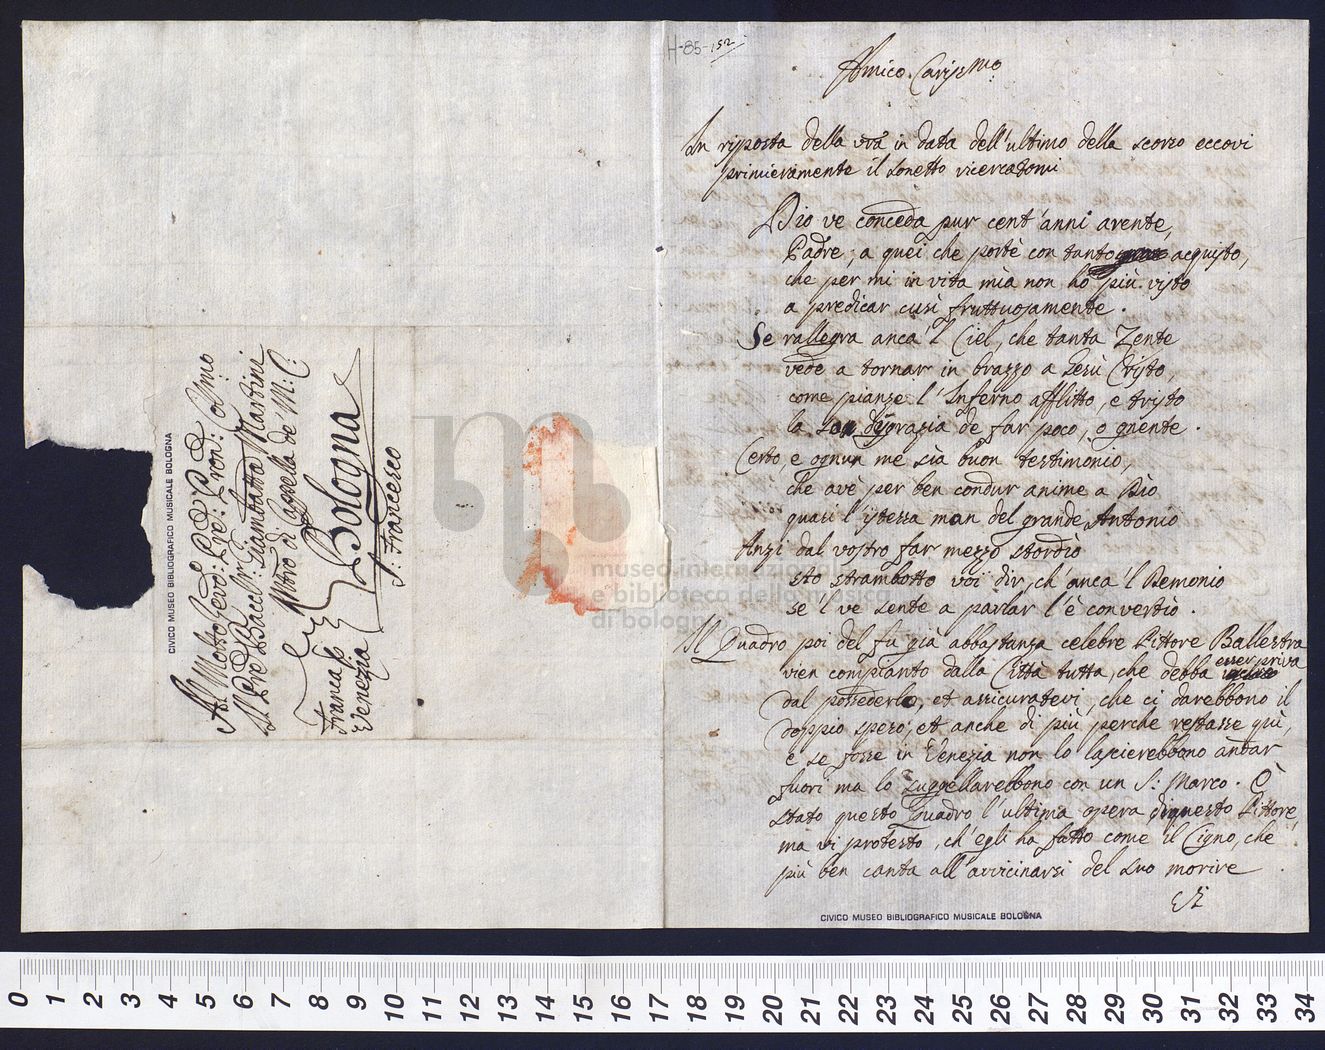 H-85-152
Amico Cariss.mo
In risposta della vra in data dell'ultimo della scorso eccovi
primieramente il sonetto ricercatomi
Dio ve conceda pur cent'anni arente,
Padre, a quei che portè con tanto acquisto,
che per mi in vita mia non hò più visto
a predicar cusì fruttuosamente.
Se rallegra anca'l Ciel, che tanta Zente
vede a tornar in brazzo a Gesù Cristo,
come pianze l'Inferno afflitto, e tristo
la so disgrazia de far poco, o gnente.
Certo, e ognun me sia buon testimonio,
che avè per ben condur anime a Dio
quasi l'istessa man del grande Antonio
Anzi dal vostro far mezzo stordio
sto strambotto voi dir, ch'anca'l Demonio
se l ve sente a parlar l'è convertio.
Il Quadro poi del fu già abbastanza celebre Pittore Ballestra
vien compianto dalla Città tutta, che debba esser priva
dal possederlo, et assicuratevi, che ci darebbono il
doppio spero, et anche di più, perche restasse quì,
e se fosse in Venezia non lo lascierebbono andar
fuori ma lo suggellarebbono con un S: Marco. È
stato questo Quadro l'ultima opera di questo Pittore,
ma vi protesto, ch'egli ha fatto come il Cigno, che
più ben canta all'avvicinarsi del suo morire
CIVICO MUSEO BIBLIOGRAFICO MUSICALE BOLOGNA
Al Molto Revd: Pre: Pron: Col:mo
Il Pre Baccl:r Giambatta Martini
Mtro di Cappella de M: C:
Bologna
S: Francesco
Franca p
Venezia
CIVICO MUSEO BIBLIOGRAFICO MUSICALE BOLOGNA
museo internazionale
e biblioteca della musica
di bologna
0 1 2 3 4 5 6 7 8 9 10 11 12 13 14 15 16 17 18 19 20 21 22 23 24 25 26 27 28 29 30 31 32 33 34